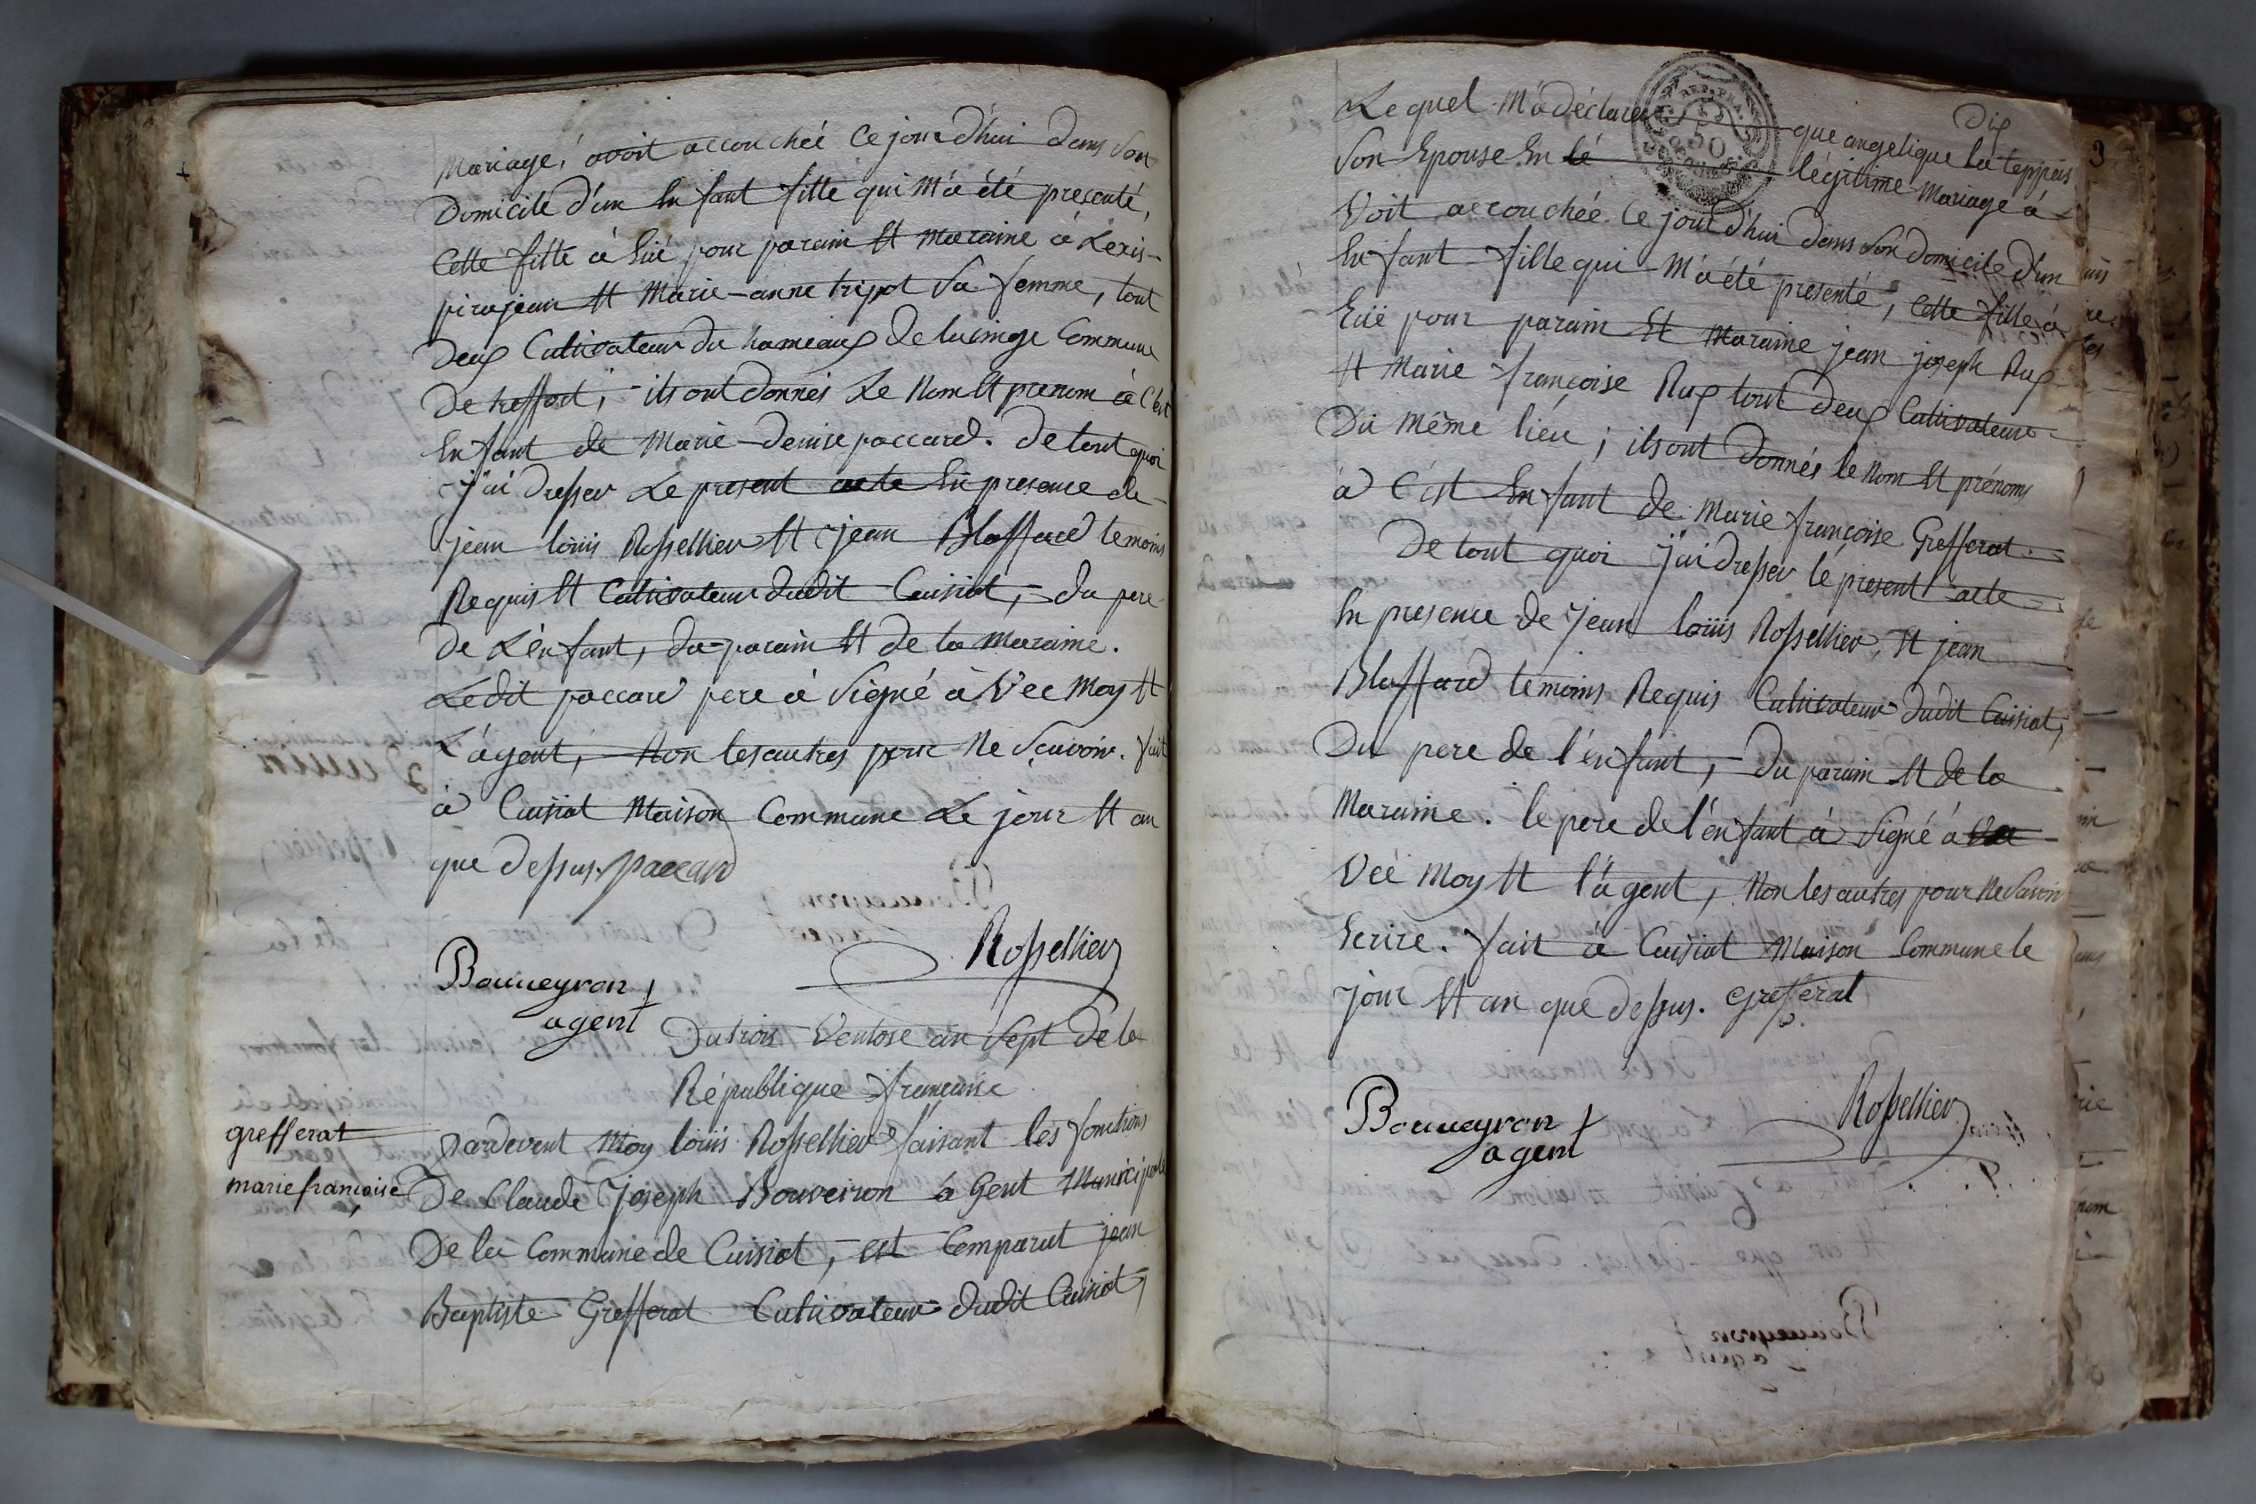 Mariage, avoit accouchée ce jour d'hui dans son
Domicile d'un Enfant fille qui M'a été presenté,
Cette fille à Eüé pour parain Et Maraine à Lexis-
pirajean Et Marie-anne tripot Sa femme, tout
Deux Cultivateur du hameaux de lucinge Commune
De treffort, ils ont donnés Le Nom Et prenom à C'est
Enfant de Marie-Denise paccard. De tout quoi
J'ai Dresser Le present acte En presence de-
jean loüis Rossellier Et jean Blaffard temoins
Requis Et Cultivateur dudit Cuisiat, du pere
De L'enfant, du parain Et de la Maraine.
Ledit paccard pere à Signé à Vec Moy Et
L'agent, Non les autres pour Ne Sçavoir. fait
à Cuisiat Maison Commune Le jour Et an
que dessus. paccard
Rossellier
Bouveyron
agent
Du trois Ventose an Sept de la
République francaise
grefferat
mariefrancoise
Pardevent Moy loüis Rossellier faisant les fonctions
De Claude Joseph Bouveiron à Gent Municipale
De la Commune de Cuisiat, est Comparut jean
Baptiste Grefferat Cultivateur dudit Cuisiat,
Dix
3
REP. FRA.
50
Le quel M'a déclarer que angelique la teppes
Son Epouse En lé légitime Mariage à
Voit accouchée Ce jour d'hui dans Son domicile d'un
Enfant fille qui M'a été presenté, Cette fille à
Eüé pour parain Et Maraine jean joseph Rux
Et Marie françoise Rux tout deux Cultivateur
Du Même lieu; ils ont donnés le Nom Et prénoms
à C'est Enfant de Marie françoise Grefferat.
De tout quoi j'ai dresser lé présent acte
En presence de Jean loüis Rossellier, Et jean
Blaffard temoins Requis Cultivateur dudit Cuisiat,
Du pere de l'enfant, du parain Et de la
Maraine. le pere de l'énfant à Signé à
Već Moy Et l'agent, Non les autres pour Ne Savoir
Ecrire. fait à Cuisiat Maison Commune le
jour Et an que dessus. Grefferat
Rossellier
Bouveyron
agent